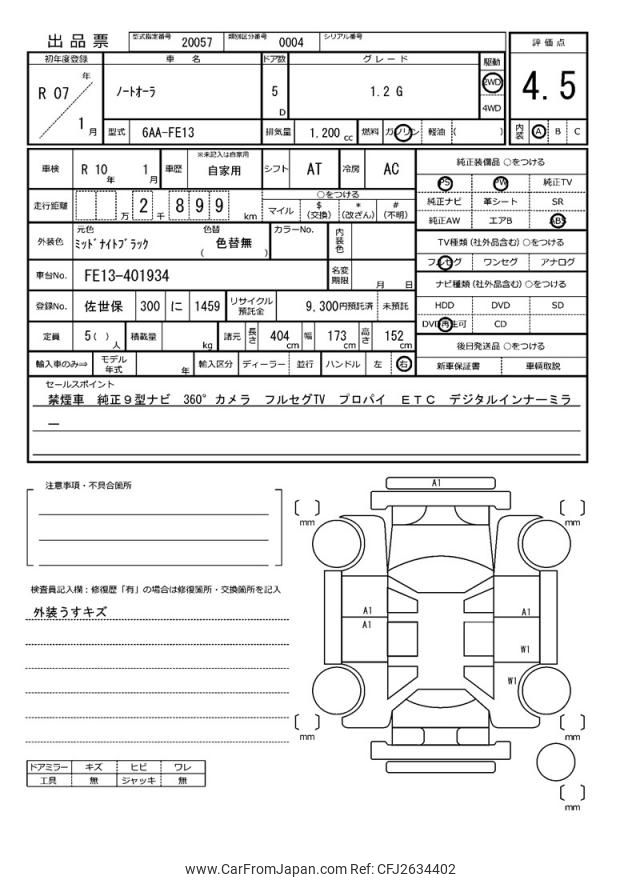 出品票 型式指定番号 20057 類別区分番号 0004 シリアル番号
評価点
4.5
内装 A B C
初年度登録 車名 ドア数 グレード 駆動
R 07 年 1 月 ﾉｰﾄｵｰﾗ 5 D 1.2 G 2WD 4WD
型式 6AA-FE13 排気量 1.200 cc 燃料 ガソリン 軽油 ( )
車検 R 10 年 1 月 車歴 ※未記入は自家用 自家用 シフト AT 冷房 AC
走行距離 万 2 千 8 9 9 km ○をつける マイル $ (交換) * (改ざん) # (不明)
外装色 元色 ﾐｯﾄﾞﾅｲﾄﾌﾞﾗｯｸ 色替 ( 色替無 ) カラーNo. 内装色
車台No. FE13-401934 名変期限 月 日
登録No. 佐世保 300 に 1459 リサイクル預託金 9,300円預託済 未預託
定員 5 ( ) 人 積載量 kg 諸元 長さ 404 cm 幅 173 cm 高さ 152 cm
輸入車のみ⇒ モデル年式 年 輸入区分 ディーラー 並行 ハンドル 左 右
純正装備品 ○をつける
PS PW 純正TV
純正ナビ 革シート SR
純正AW エアB ABS
TV種類 (社外品含む) ○をつける
フルセグ ワンセグ アナログ
ナビ種類 (社外品含む) ○をつける
HDD DVD SD
DVD再生可 CD
後日発送品 ○をつける
新車保証書 車輌取説
セールスポイント
禁煙車 純正９型ナビ 360°カメラ フルセグTV プロパイ ＥＴＣ デジタルインナーミラ
ー
注意事項・不具合箇所
検査員記入欄：修復歴「有」の場合は修復箇所・交換箇所を記入
外装うすキズ
ドアミラー キズ ヒビ ワレ
工具 無 ジャッキ 無
A1
mm mm
A1 A1
A1
W1
W1
mm mm
mm
www.CarFromJapan.com Ref: CFJ2634402